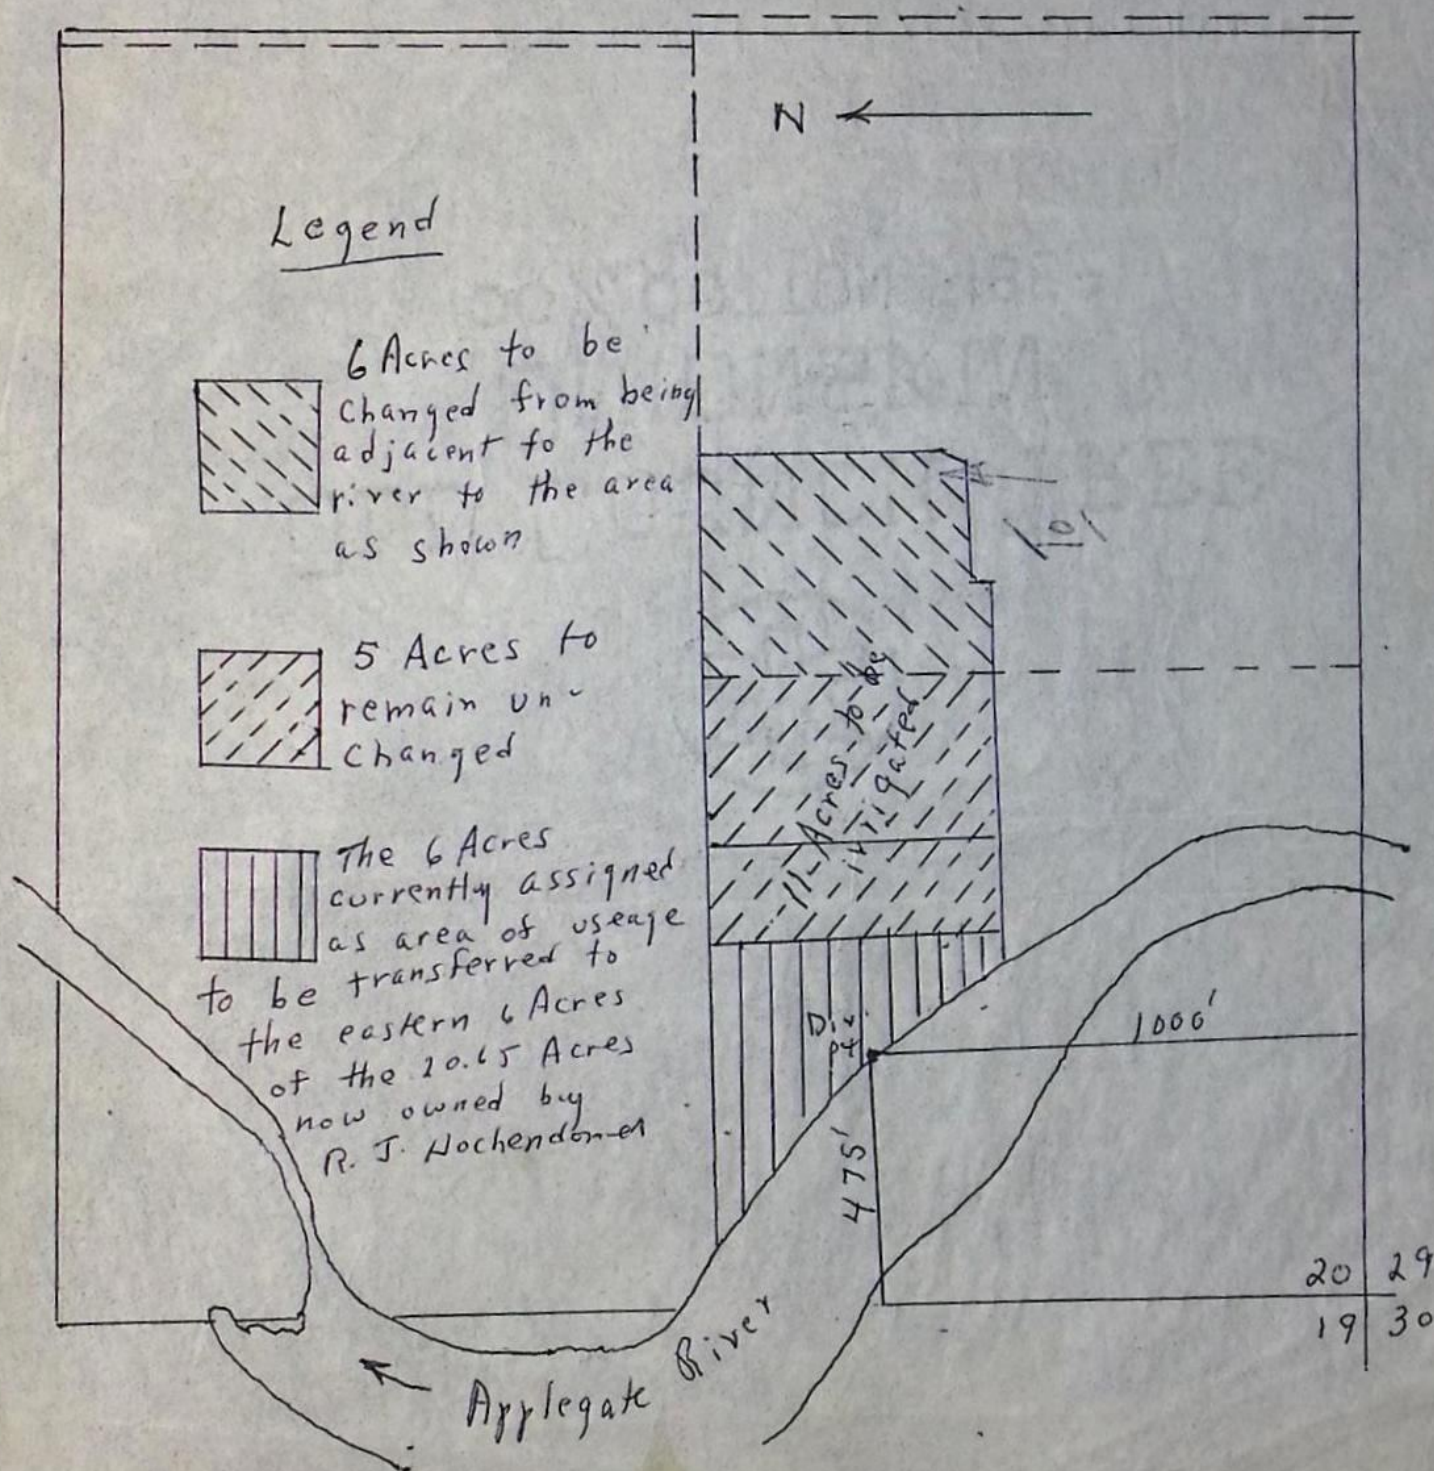 N
Legend
6 Acres to be
changed from being
adjacent to the
river to the area
as shown
5 Acres to
remain un-
changed
The 6 Acres
currently assigned
as area of useage
to be transferred to
the eastern 6 Acres
of the 20.65 Acres
now owned buy
R. J. Hochendoner
11 Acres to be
irrigated
Div
pt
1000'
475'
20 29
19 30
Applegate River